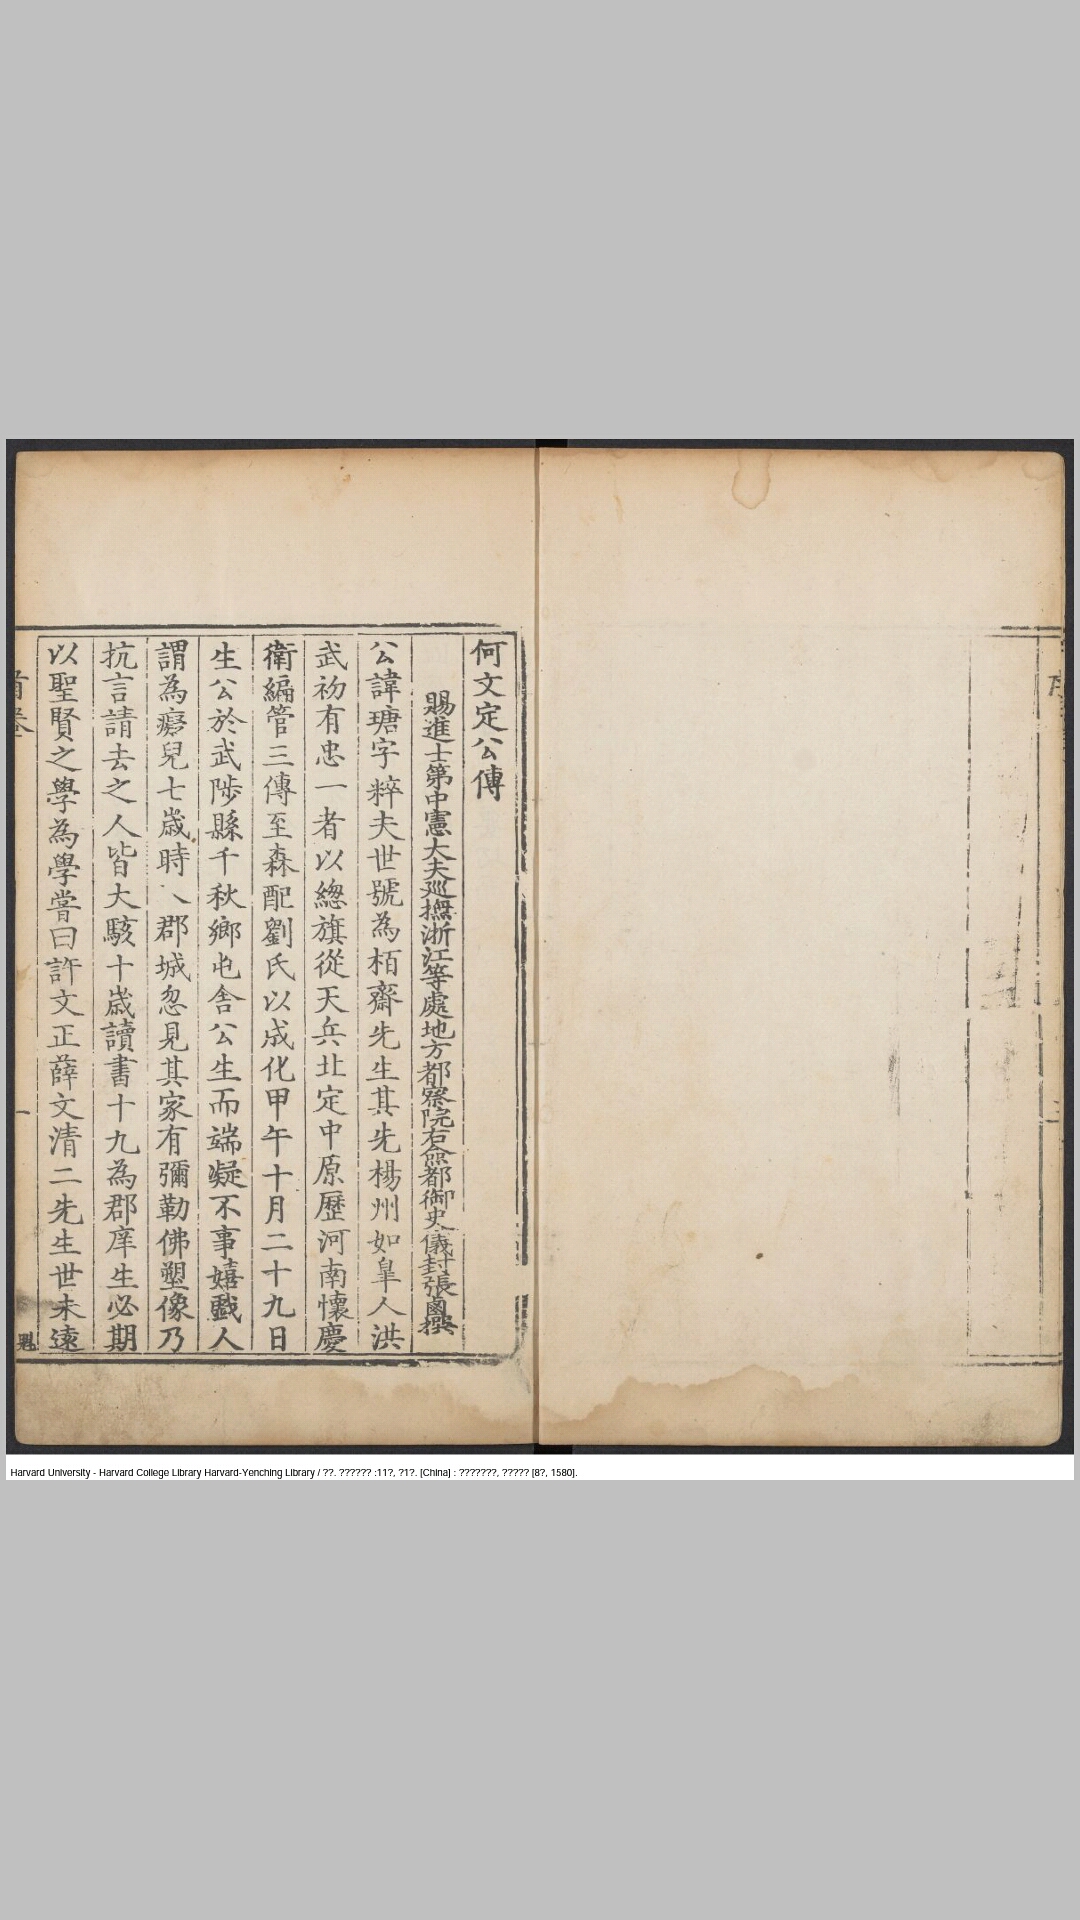 何文定公傳
賜進士第中憲大夫巡撫浙江等處地方都察院右僉都御史儀封張鹵撰
公諱瑭字粹夫世號為栢齋先生其先楊州如臯人洪
武初有忠一者以緫旗從天兵北定中原歷河南懷慶
衛編管三傳至森配劉氏以成化甲午十月二十九日
生公於武陟縣千秋鄉屯舍公生而端凝不事嬉戲人
謂為癡兒七歲時入郡城忽見其家有彌勒佛塑像乃
抗言請去之人皆大駭十歲讀書十九為郡庠生必期
以聖賢之學為學嘗曰許文正薛文清二先生世未遠
首卷
一
Harvard University - Harvard College Library Harvard-Yenching Library / ??. ?????? :11?, ?1?. [China] : ???????, ????? [8?, 1580].